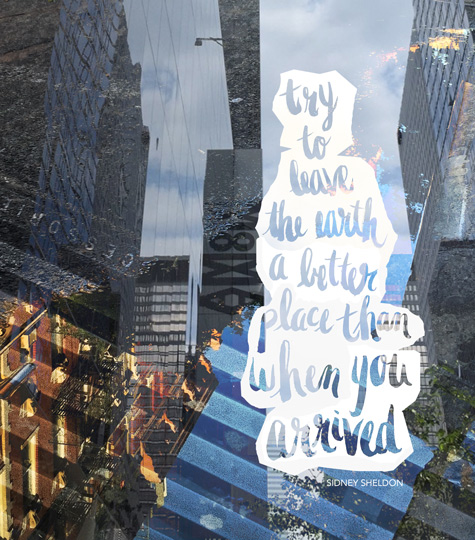 try
to
leave
the earth
a better
place than
when you
arrived
SIDNEY SHELDON